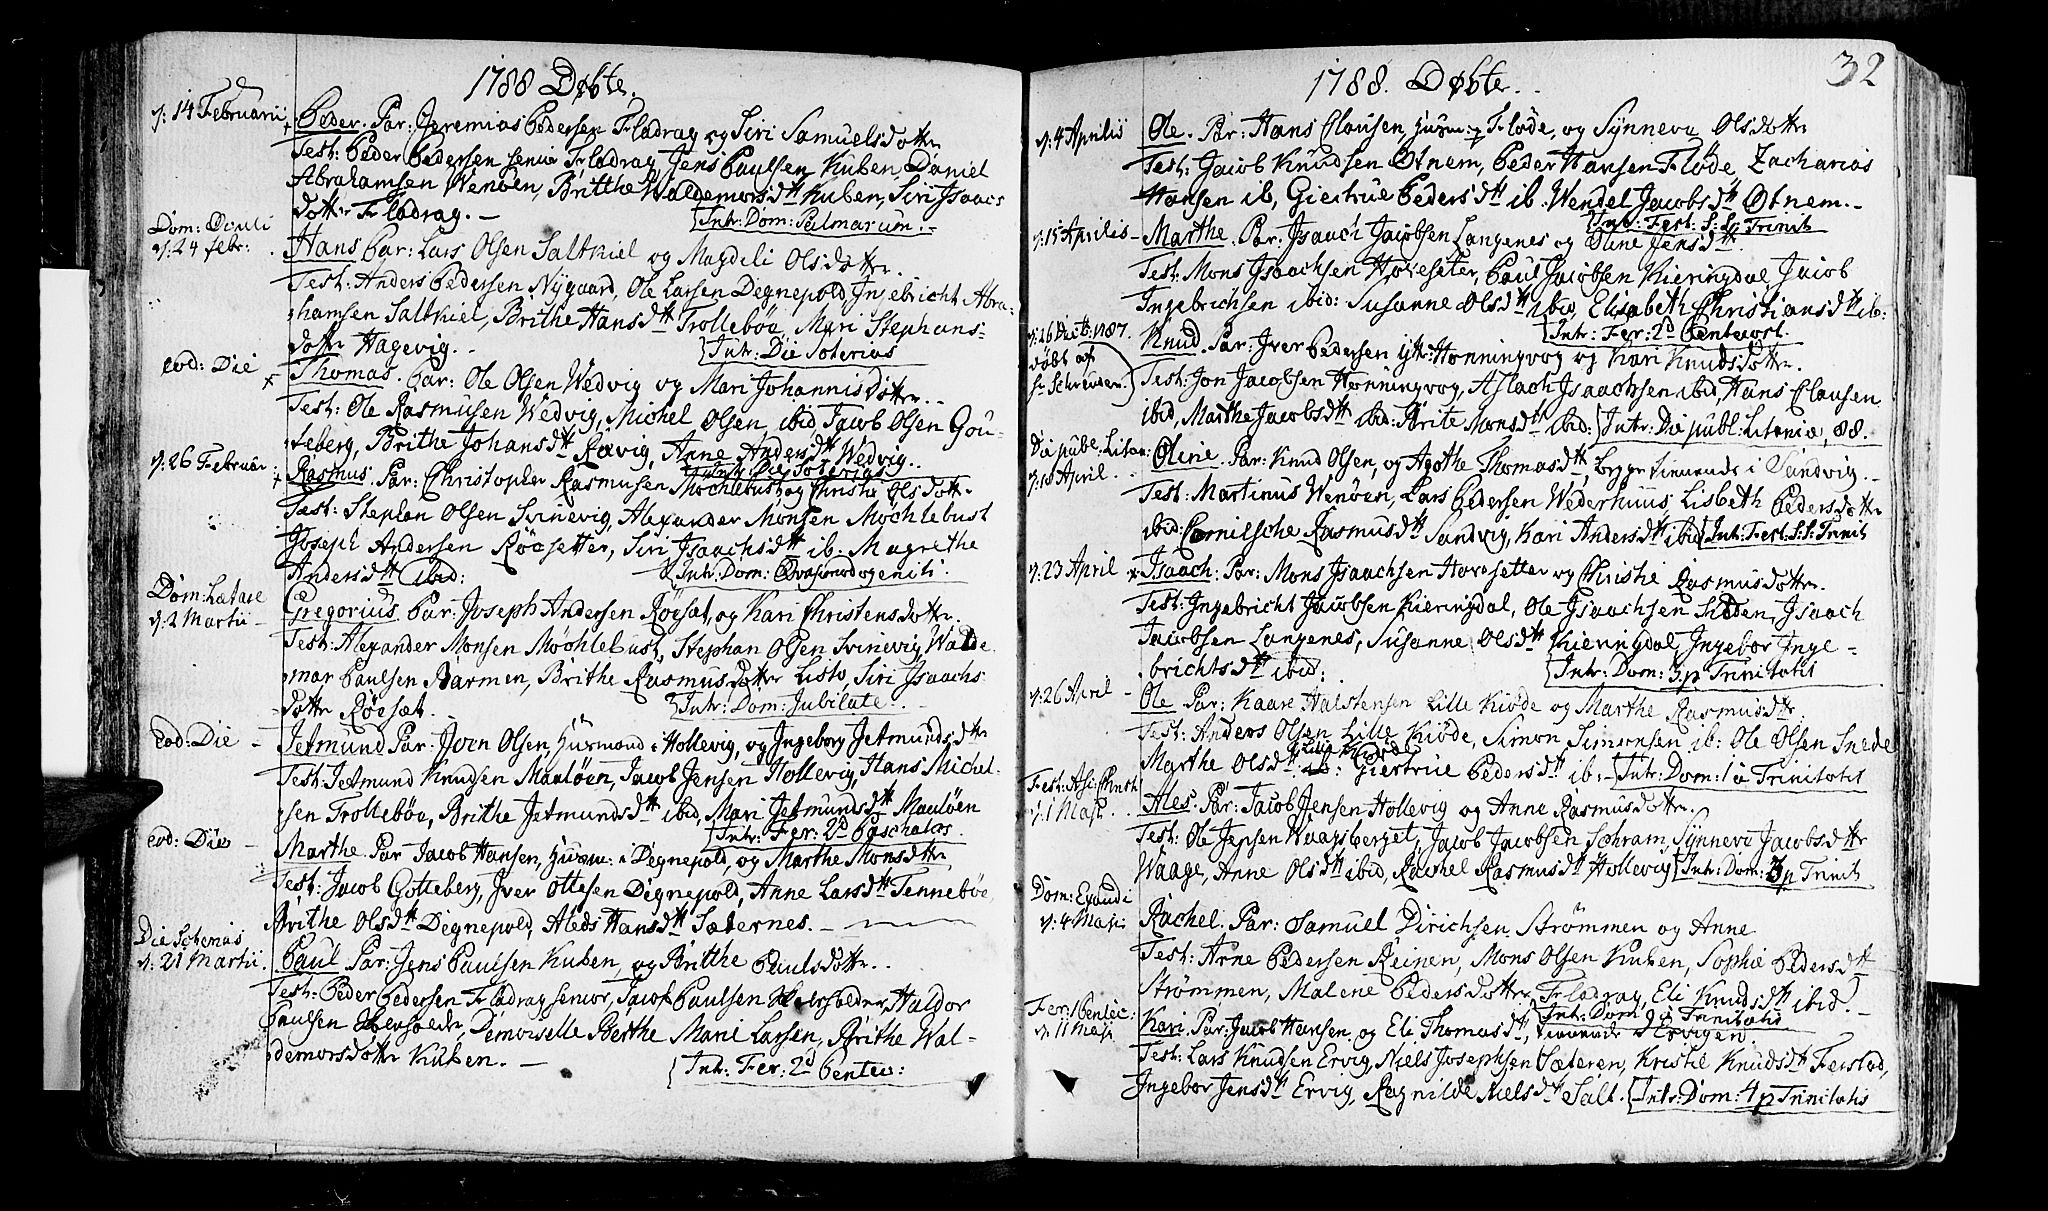 1788 Døbte.
d: 14 Februarii
Peder. Par: Jeremias Pedersen Fladrag og Siri Samuelsdottr
Test: Peder Pedersen senior Fladrag, Jens Paulsen Kuben, Daniel
Abrahamsen Wenöen, Britthe Waldemorsdtt Kuben, Siri Jsaacs
dottr Fladrag. –
{Intr: Dom: Palmarum. –
Dom: Oculi
d: 24 febr:
Hans Par: Lars Olsen Saltkiel og Magdeli Olsdottr.
Test: Anders Pedersen Nygaard, Ole Larsen Degnepold, Jngebricht Abra-
hamsen Saltkiel, Brithe Hansdtt Trolleböe, Mari Stephans-
dottr Hagevig. –
{Intr: Die Soterias
eod: Die
Thomas. Par: Ole Olsen Wedvig og Mari Johannisdottr. –
Test: Ole Rasmusen Wedvig, Michel Olsen ibid, Jacob Olsen Gou-
teberg, Brithe Johansdtt Rævig, Anne Andersdtt Wedvig.
{Intr: Die Soterias
d: 26 Februar:
Rasmus. Par: Christopher Rasmusen Möchlebust og Christie Olsdottr
Test: Stephan Olsen Svinevig, Alexander Monsen Möchlebust
Joseph Andersen Röesetter, Siri Jsaachsdtt ib: Magrethe
Andersdtt ibid:
{Intr: Dom: Qvasimodogeniti.
Dom: Lætare
d: 2 Martii –
Gregorius Par: Joseph Andersen Röesæt, og Kari Christensdottr.
Test: Alexander Monsen Möchlebust, Stephan Olsen Svinevig, Walde
mar Paulsen Barmen, Brithe Rasmusdottr Listo, Siri Jsaachs
dottr Röesæt. –
{Intr: Dom: Jubilate. –
eod: Die –
Jetmund Par: Joen Olsen Huusmand i Hollevig, og Jngeborg Jetmundsdtt
Test: Jetmund Knudsen Maulöen, Jacob Jensen Hollevig, Hans Michel-
sen Trolleböe, Brithe Jetmundsdtt ibid, Mari Jetmundsdtt Maulöen
{Intr: Fer: 2d Paschatos.
eod: Die –
Marthe. Par Jacob Hansen, Huusm: i Degnepold, og Marthe Monsdottr
Test: Jacob Gotteberg, Jver Ottesen Degnepold, Anne Larsdtt Tenneböe
Brithe Olsdtt Degnepold, Aleds Hansdtt Sæternes. –
Die Soterias
d: 21 Martii.
Paul Par: Jens Paulsen Kuben, og Britthe Paulsdottr.
Test: Peder Pedersen Fladrag senior, Jacob Paulsen Hersoldr, Haldor
Paulsen, Demoiselle Berthe Marie Larsen, Brithe Wal-
demorsdottr Kuben. –
{Intr: Fer: 2d Pentec:
32
1788. Døbte. –
d: 4 Aprilis
Ole. Par: Hans Clausen, Huusm: p Flöde, og Synneva Olsdottr
Test: Jacob Knudsen Otnem, Peder Hansen Flöde, Zacharias
Hansen ib, Giertrue Pedersdtt ib: Wendel Jacobsdtt Otnem. –
{Intr: Fest: S: S: Trinit
d: 15 Aprilis –
Marthe. Par: Jsaach Jacobsen Langenes og Oline Jensdtt.
Test: Mons Jsaachsen Hovesetter, Paul Jacobsen Kieringdal, Jacob
Ingebrichsen ibid: Susanne Olsdtt ibid, Elisabeth Christiansdtt ib:
{Intr: Fer: 2d Pentecost.
d: 26 Decbr 1787.
döbt af
Hr Schreuder.)
Knud. Par: Jver Pedersen yttr Honningvog og Kari Knudsdottr.
Test: Jon Jacobsen Honningvog, Aslach Jsaachsen ibid, Hans Clausen
ibid, Marthe Jacobsdtt ibid: Brite Monsdtt ibid: {Intr: Die publ: Litaniæ, 88.
Die publ: Litan:
d: 18 April. –
Oline. Par: Knud Olsen, og Agothe Thomasdtt, begge tienende i Sandvig. –
Test: Martinus Wenöen, Lars Pedersen Wederhuus, Lisbeth Pedersdottr
ibid: Cornilsche Rasmusdtt Sandvig, Kari Andersdtt ibid {Intr: Fest: S: S: Trinit
d: 23 April
Jsaach. Par: Mons Jsaachsen Hovesetter og Christie Rasmusdottr.
Test: Jngebricht Jacobsen Kieringdal, Ole Jsaachsen Liden, Jsaach
Jacobsen Langenes, Susanne Olsdtt Kieringdal, Jngebor Jnge-
brichtsdtt ibid:
{Intr: Dom: 3 p Trinitatis
d: 26 April –
Ole Par: Kaare Halstensen Lille Kiöde og Marthe Rasmusdtt.
Test: Anders Olsen Lille Kiöde, Simon Simonsen ib: Ole Olsen Snede
Lille Kiöde
Marthe Olsdtt ib: Giertrue Pedersdtt ib: – {Intr: Dom: 1 a Trinitatis
Fest: Asc: Christi
d: 1 Maji. –
Ales. Par: Jacob Jensen Hollevig og Anne Rasmusdottr.
Test: Ole Jensen Waagsberget, Jacob Jacobsen Schram, Synneva Jacobsdttr
Waage, Anne Olsdtt ibid, Rachel Rasmusdtt Hollevig {Intr: Dom: 3 p Trinit
Dom: Exaudi
d: 4 Maji
Rachel. Par: Samuel Dirichsen Strömmen og Anne
Test: Arne Pedersen Reinen, Mons Olsen Kuben, Sophie Pedersdtt
Strömmen, Malene Pedersdottr Fladrag, Eli Knudsdtt ibid. –
{Intr: Dom p Trinitatis
Fer: 1 Pentec:
d: 11 Maji
Kari. Par: Jacob Hansen og Eli Thomasdtt, tienende i Ervigen.
Test: Lars Knudsen Ervig, Niels Josephsen Sæteren, Kristie Knudsdtt Ferstad,
Ingebor Jensdtt Ervig, Ragnilde Nielsdtt Salt. {Intr: Dom: 4 p Trinitatis